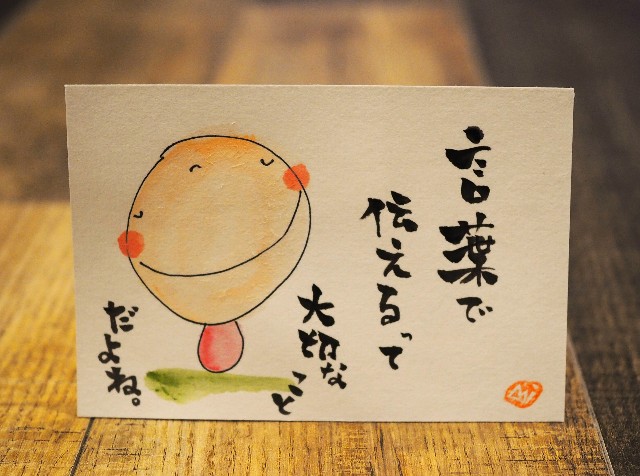 言葉で
伝えるって
大切な
こと
だよね。